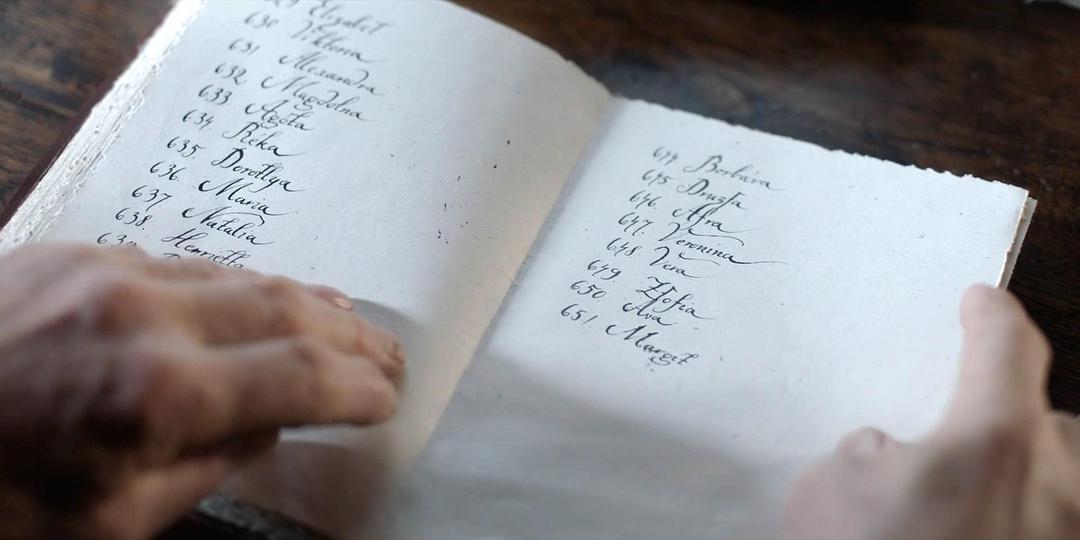 Elizabet
630 Viktoria
631 Alexandra
632 Magdolna
633 Agota
634 Reka
635. Dorottya
636. Maria
637 Natalia
638. Henrietta
644 Borbára
645 Druzsa
646. Afra
647. Veronina
648 Vera
649 Zsofia
650 Ava
651. Margit